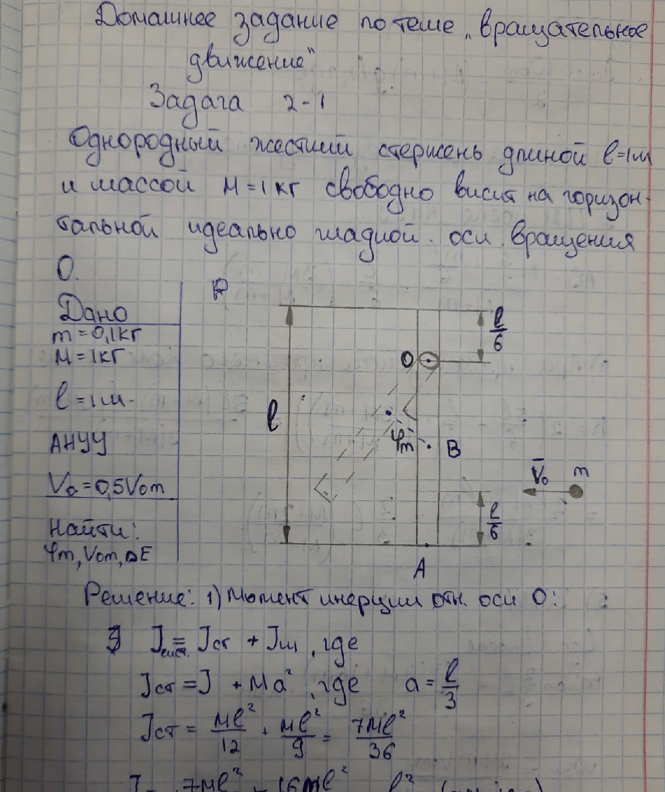 Домашнее задание по теме „вращательное
движение"
Задача 2-1
Однородный жесткий стержень длиной l=1м
и массой M=1кг свободно висит на горизон-
тальной идеально гладкой оси вращения
О.
Дано
m=0,1кг
M=1кг
l=1м
АНУУ
V₀=0,5V₀m
Найти:
φm, V₀m, ΔE
l/6
О
l
φm
B
V̄₀ m
l/6
A
Решение: 1) Момент инерции отн. оси О:
Jсист. = Jст + Jш, где
Jст = J + Ma², где a = l/3
Jст = Ml²/12 + Ml²/9 = 7Ml²/36